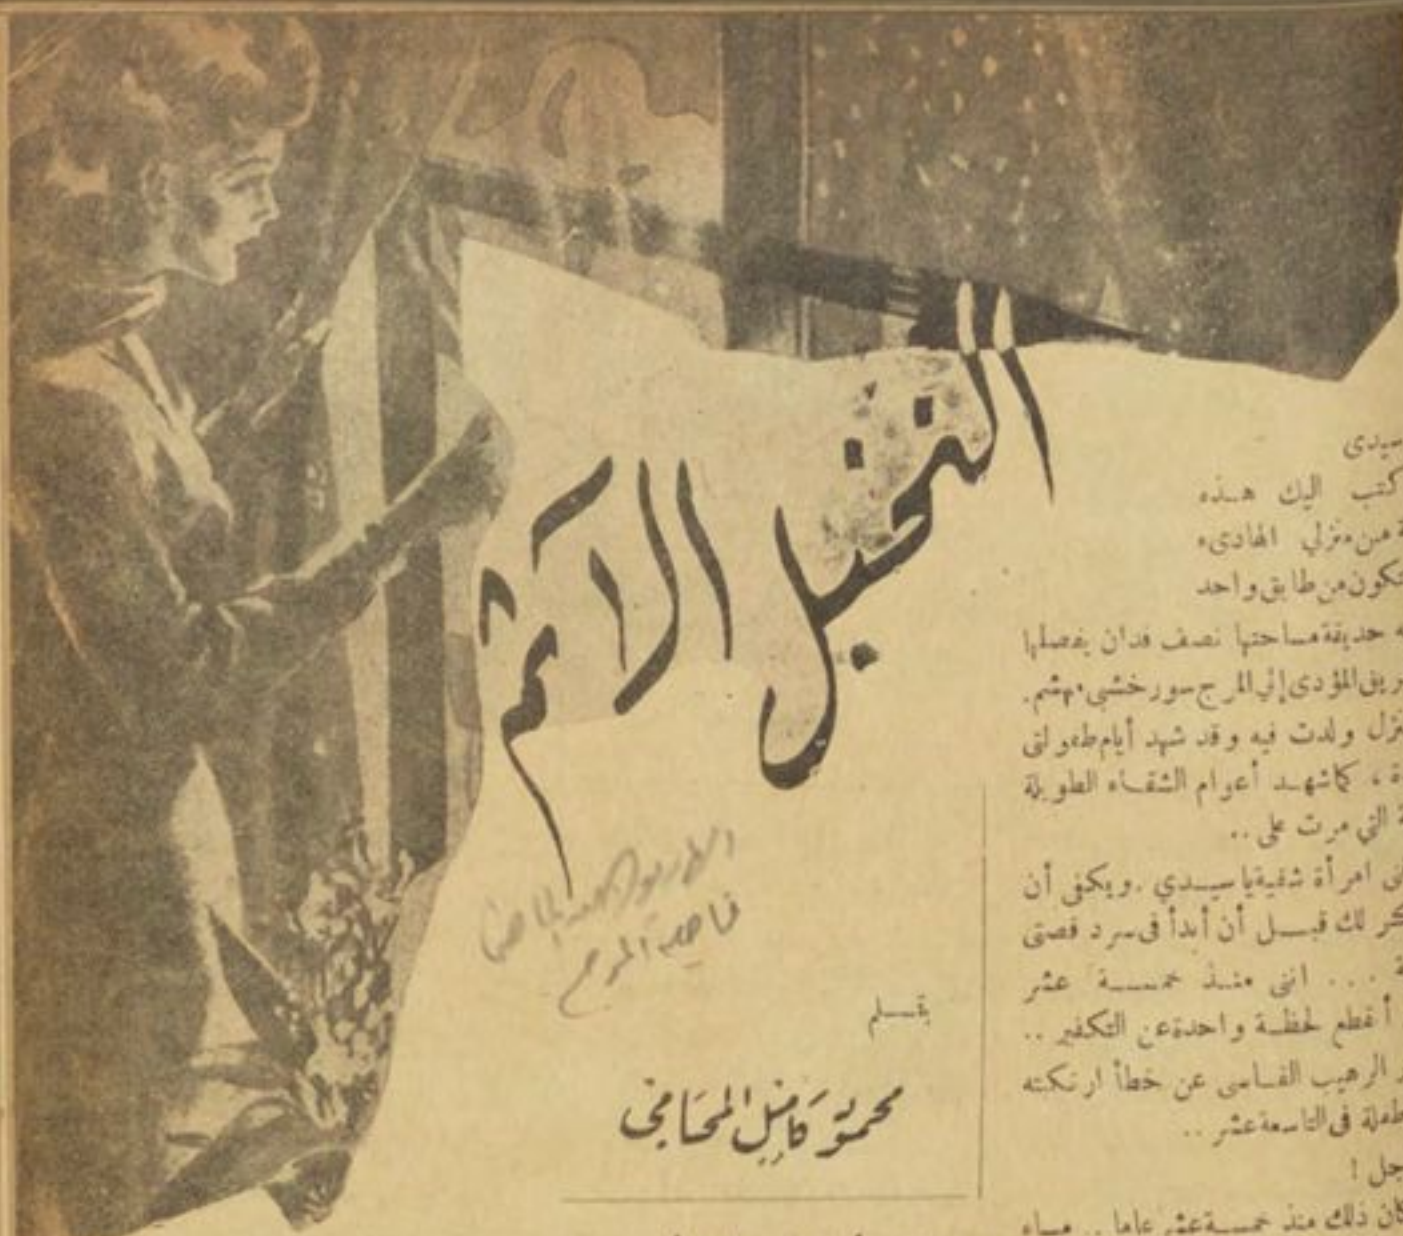 النخيل الآثم
بقلم
محمود كامل المحامي
سيدى
كتب اليك هذه
من منزلي الهادىء
من طابق واحد
حديقة مساحتها نصف فدان يفصلها
المؤدى إلى المرج سور خشبى مهشم.
ولدت فيه وقد شهد أيام طفولتى
، كما شهد أعوام الشقاء الطويلة
التي مرت على ..
امرأة شقية يا سيدي . ويكفى أن
لك قبل أن أبدأ فى سرد قصتى
... اننى منذ خمسة عشر
أنقطع لحظة واحدة عن التكفير ..
الرهيب القاسى عن خطأ ارتكبته
طفلة فى التاسعة عشر ..
!
ذلك منذ خمسة عشر عاما .. مساء